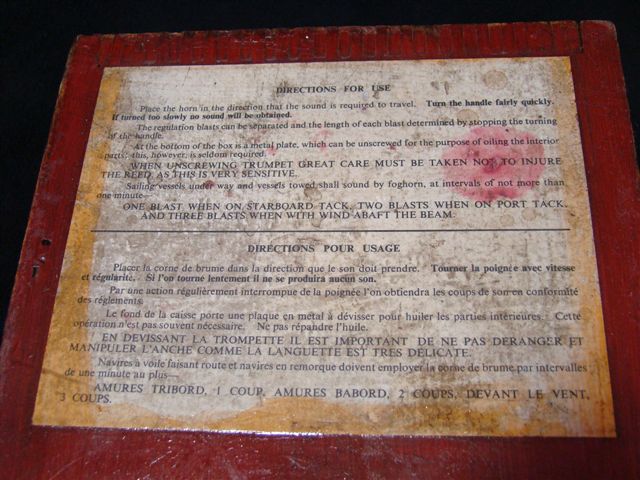 DIRECTIONS FOR USE
Place the horn in the direction that the sound is required to travel. Turn the handle fairly quickly.
If turned too slowly no sound will be obtained.
The regulation blasts can be separated and the length of each blast determined by stopping the turning
of the handle.
At the bottom of the box is a metal plate, which can be unscrewed for the purpose of oiling the interior
parts; this, however, is seldom required.
WHEN UNSCREWING TRUMPET GREAT CARE MUST BE TAKEN NOT TO INJURE
THE REED, AS THIS IS VERY SENSITIVE.
Sailing vessels under way and vessels towed shall sound by foghorn, at intervals of not more than
one minute—
ONE BLAST WHEN ON STARBOARD TACK, TWO BLASTS WHEN ON PORT TACK,
AND THREE BLASTS WHEN WITH WIND ABAFT THE BEAM.
DIRECTIONS POUR USAGE
Placer la corne de brume dans la direction que le son doit prendre. Tourner la poignée avec vitesse
et régularité. Si l'on tourne lentement il ne se produira aucun son.
Par une action régulièrement interrompue de la poignée l'on obtiendra les coups de son en conformité
des réglements.
Le fond de la caisse porte une plaque en métal à dévisser pour huiler les parties intérieures. Cette
opération n'est pas souvent nécessaire. Ne pas répandre l'huile.
EN DEVISSANT LA TROMPETTE IL EST IMPORTANT DE NE PAS DERANGER ET
MANIPULER L'ANCHE COMME LA LANGUETTE EST TRES DELICATE.
Navires à voile faisant route et navires en remorque doivent employer la corne de brume par intervalles
de une minute au plus—
AMURES TRIBORD, 1 COUP, AMURES BABORD, 2 COUPS, DEVANT LE VENT,
3 COUPS.